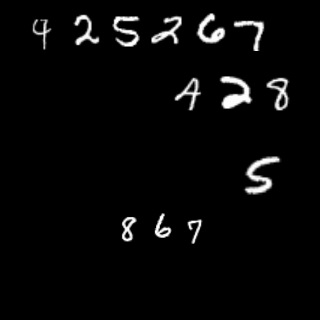 425267
428
5
867